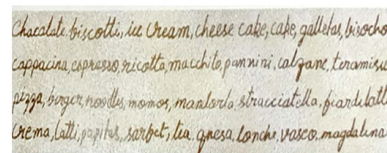 Chacalate, biscotti, ice cream, cheese cake, cake, galletas, bisocho
cappacina, espresso, ricotta, macchito, pannini, calzane, teramisu
pizza, burger, noodles, momos, mandorla, stracciatella, fiardilatt
Crema, latti, papitas, sarbet, tea, qnesa, lonche, vasco, magdalina